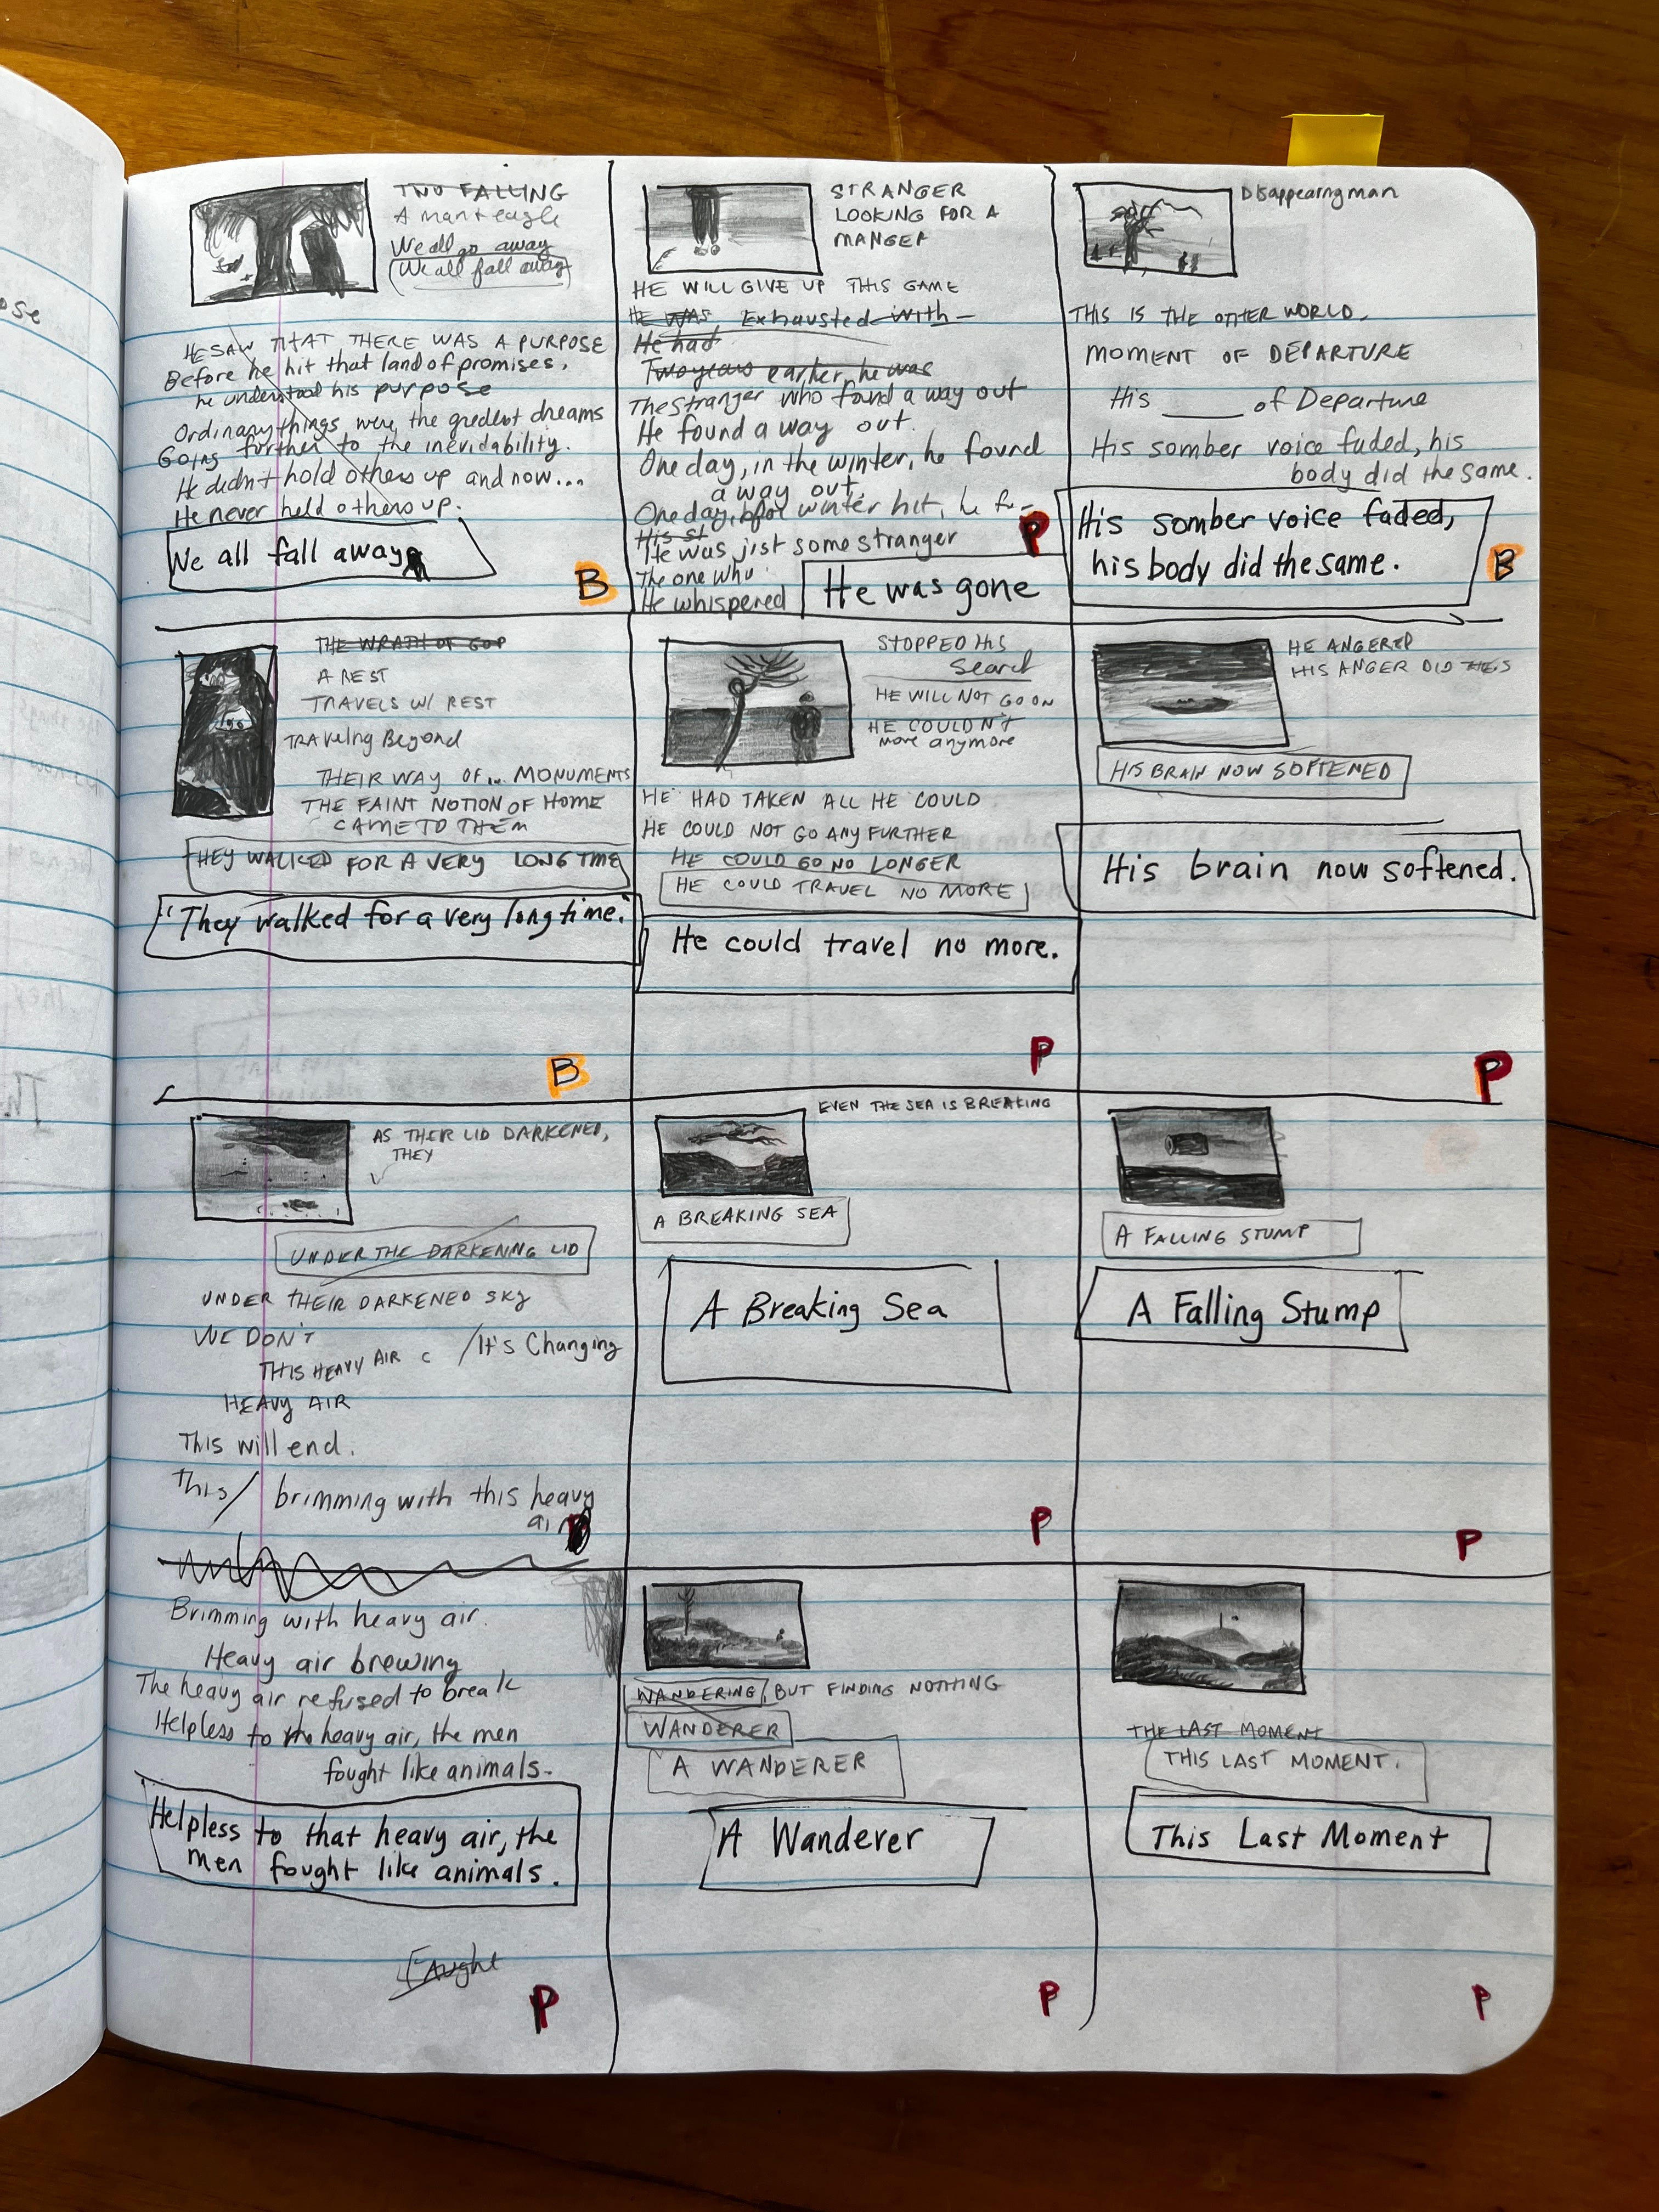 TWO FALLING
A man + eagle
We all go away
We all fall away
HE SAW THAT THERE WAS A PURPOSE
Before he hit that land of promises,
he understood his purpose
Ordinary things were the greatest dreams
Going further to the inevidability.
He didn't hold others up and now...
He never held others up.
We all fall away
B
STRANGER
LOOKING FOR A
MANGER
HE WILL GIVE UP THIS GAME
HE WAS Exhausted with -
He had
Two years earlier, he was
The stranger who found a way out
He found a way out.
One day, in the winter, he found
a way out.
One day, before winter hit, he fu-
His st
He was jist some stranger
The one who
He whispered
P
He was gone
Disappearing man
THIS IS THE OTHER WORLD.
MOMENT OF DEPARTURE
His ____ of Departure
His somber voice faded, his
body did the same.
His somber voice faded,
his body did the same.
B
THE WRATH OF GOD
A REST
TRAVELS W/ REST
TRAVelng Beyond
THEIR WAY OF... MONUMENTS
THE FAINT NOTION OF HOME
CAME TO THEM
THEY WALKED FOR A VERY LONG TIME
"They walked for a very long time."
B
STOPPED HIS
Search
HE WILL NOT GO ON
HE COULDN'T
move anymore
HE HAD TAKEN ALL HE COULD
HE COULD NOT GO ANY FURTHER
HE COULD GO NO LONGER
HE COULD TRAVEL NO MORE
He could travel no more.
P
HE ANGERED
HIS ANGER DID THIS
HIS BRAIN NOW SOFTENED
His brain now softened.
P
AS THEIR LID DARKENED,
THEY
UNDER THE DARKENING LID
UNDER THEIR DARKENED SKY
WE DON'T
THIS HEAVY AIR C / It's Changing
HEAVY AIR
This will end.
This / brimming with this heavy
air
Brimming with heavy air.
Heavy air brewing
The heavy air refused to break
Helpless to the heavy air, the men
fought like animals.
Helpless to that heavy air, the
men fought like animals.
Faught
P
EVEN THE SEA IS BREAKING
A BREAKING SEA
A Breaking Sea
P
A FALLING STUMP
A Falling Stump
P
WANDERING, BUT FINDING NOTHING
WANDERER
A WANDERER
A Wanderer
P
THE LAST MOMENT
THIS LAST MOMENT.
This Last Moment
P